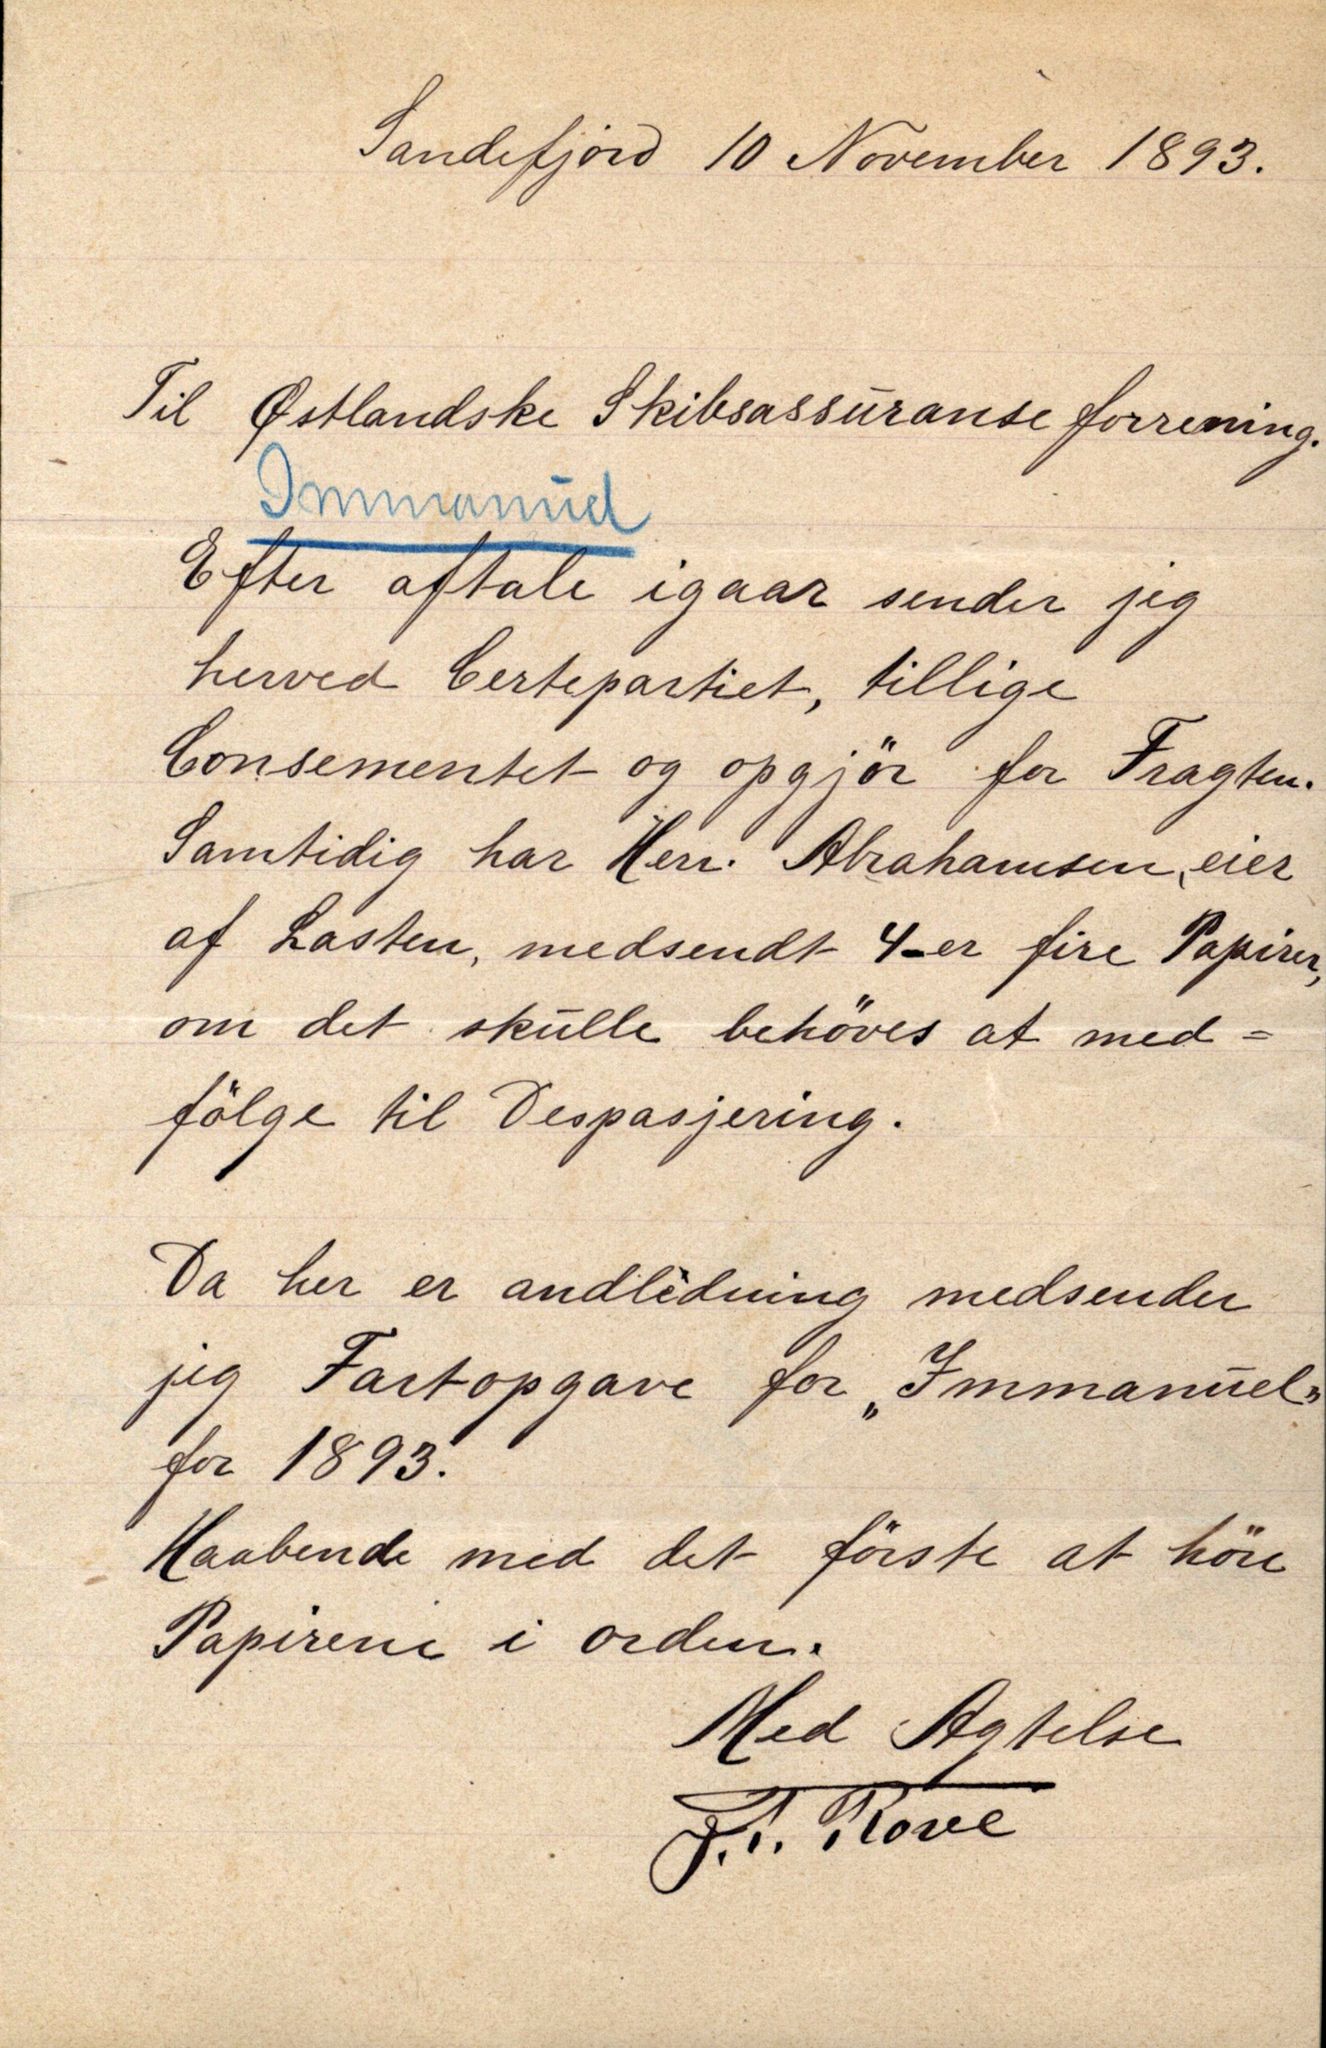 Sandefjord 10 November 1893.
Til Østlandske Skibsassuranse forrening.
Immanuel
Efter aftale igaar sender jeg
herved Certepartiet, tillige
Consementet og opgjör for Fragten.
Samtidig har Herr. Abrahamsen, eier
af Lasten, medsendt 4-er fire Papirer,
om det skulle behöves at med=
fölge til Despasjering.
Da her er andledning medsender
jeg Fartopgave for „Immanuel"
for 1893.
Haabende med det förste at höre
Papirene i orden.
Med Agtelse
Rove